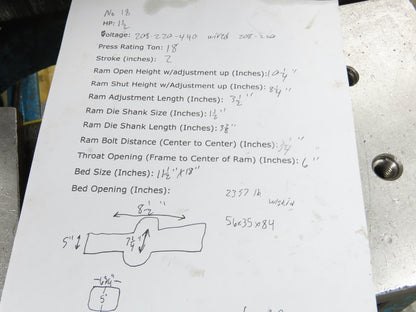 No 18
HP: 1½
Voltage: 208-220-440 wired 208-220
Press Rating Ton: 18
Stroke (inches): 2
Ram Open Height w/adjustment up (Inches): 10¼"
Ram Shut Height w/Adjustment up (Inches): 8¼"
Ram Adjustment Length (Inches): 2½"
Ram Die Shank Size (Inches): 1½"
Ram Die Shank Length (Inches): 3⅜"
Ram Bolt Distance (Center to Center) (Inches):
Throat Opening (Frame to Center of Ram) (Inches): 6"
Bed Size (Inches): 11½" x 18"
Bed Opening (Inches):
2357 lb
w/skid
8½"
56x35x84
5"
7¼"
5"